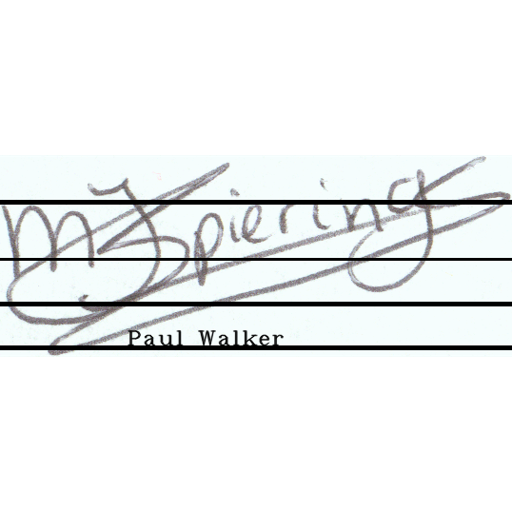 MJSpiering
Paul Walker